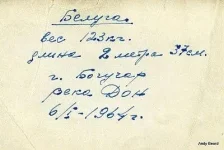 Белуга.
вес 123кг.
длина 2 метра 37см.
г. Богучар
река Дон
6/5-1964г.